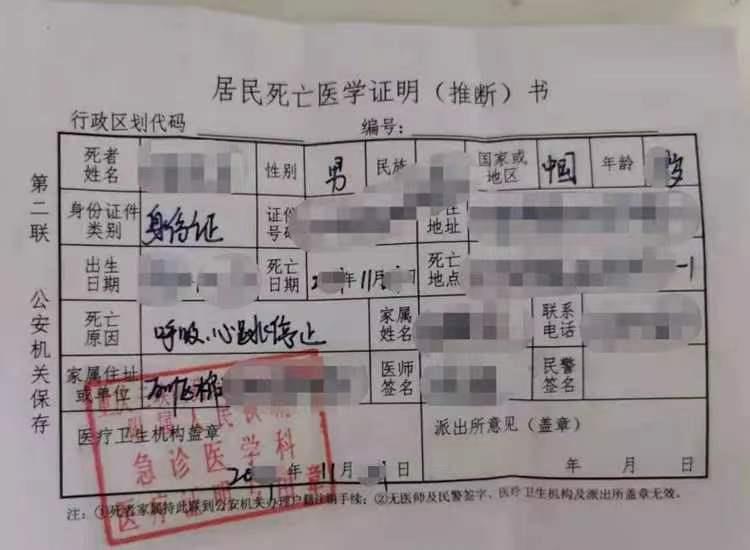 居民死亡医学证明（推断）书
行政区划代码 编号：
第二联 公安机关保存
死者姓名 性别 男 民族 国家或地区 中国 年龄 岁
身份证件类别 身份证 证件号码 地址
出生日期 死亡日期 年11月 死亡地点
死亡原因 呼吸、心跳停止 家属姓名 联系电话
家属住址或单位 医师签名 民警签名
医疗卫生机构盖章 派出所意见（盖章）
人民
急诊医学科
医疗证明
年11月 日 年 月 日
注：①死者家属持此联到公安机关办理户籍注销手续；②无医师及民警签字、医疗卫生机构及派出所盖章无效。